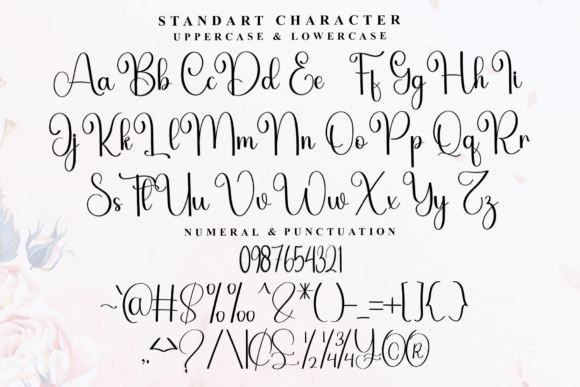 STANDART CHARACTER
UPPERCASE & LOWERCASE
Aa Bb Cc Dd Ee Ff Gg Hh Ii
Jj Kk Ll Mm Nn Oo Pp Qq Rr
Ss Tt Uu Vv Ww Xx Yy Zz
NUMERAL & PUNCTUATION
0987654321
~`@#$%‰^&*()-_=+[]{}
,.<>?/\|₵£½¼¾¥©®